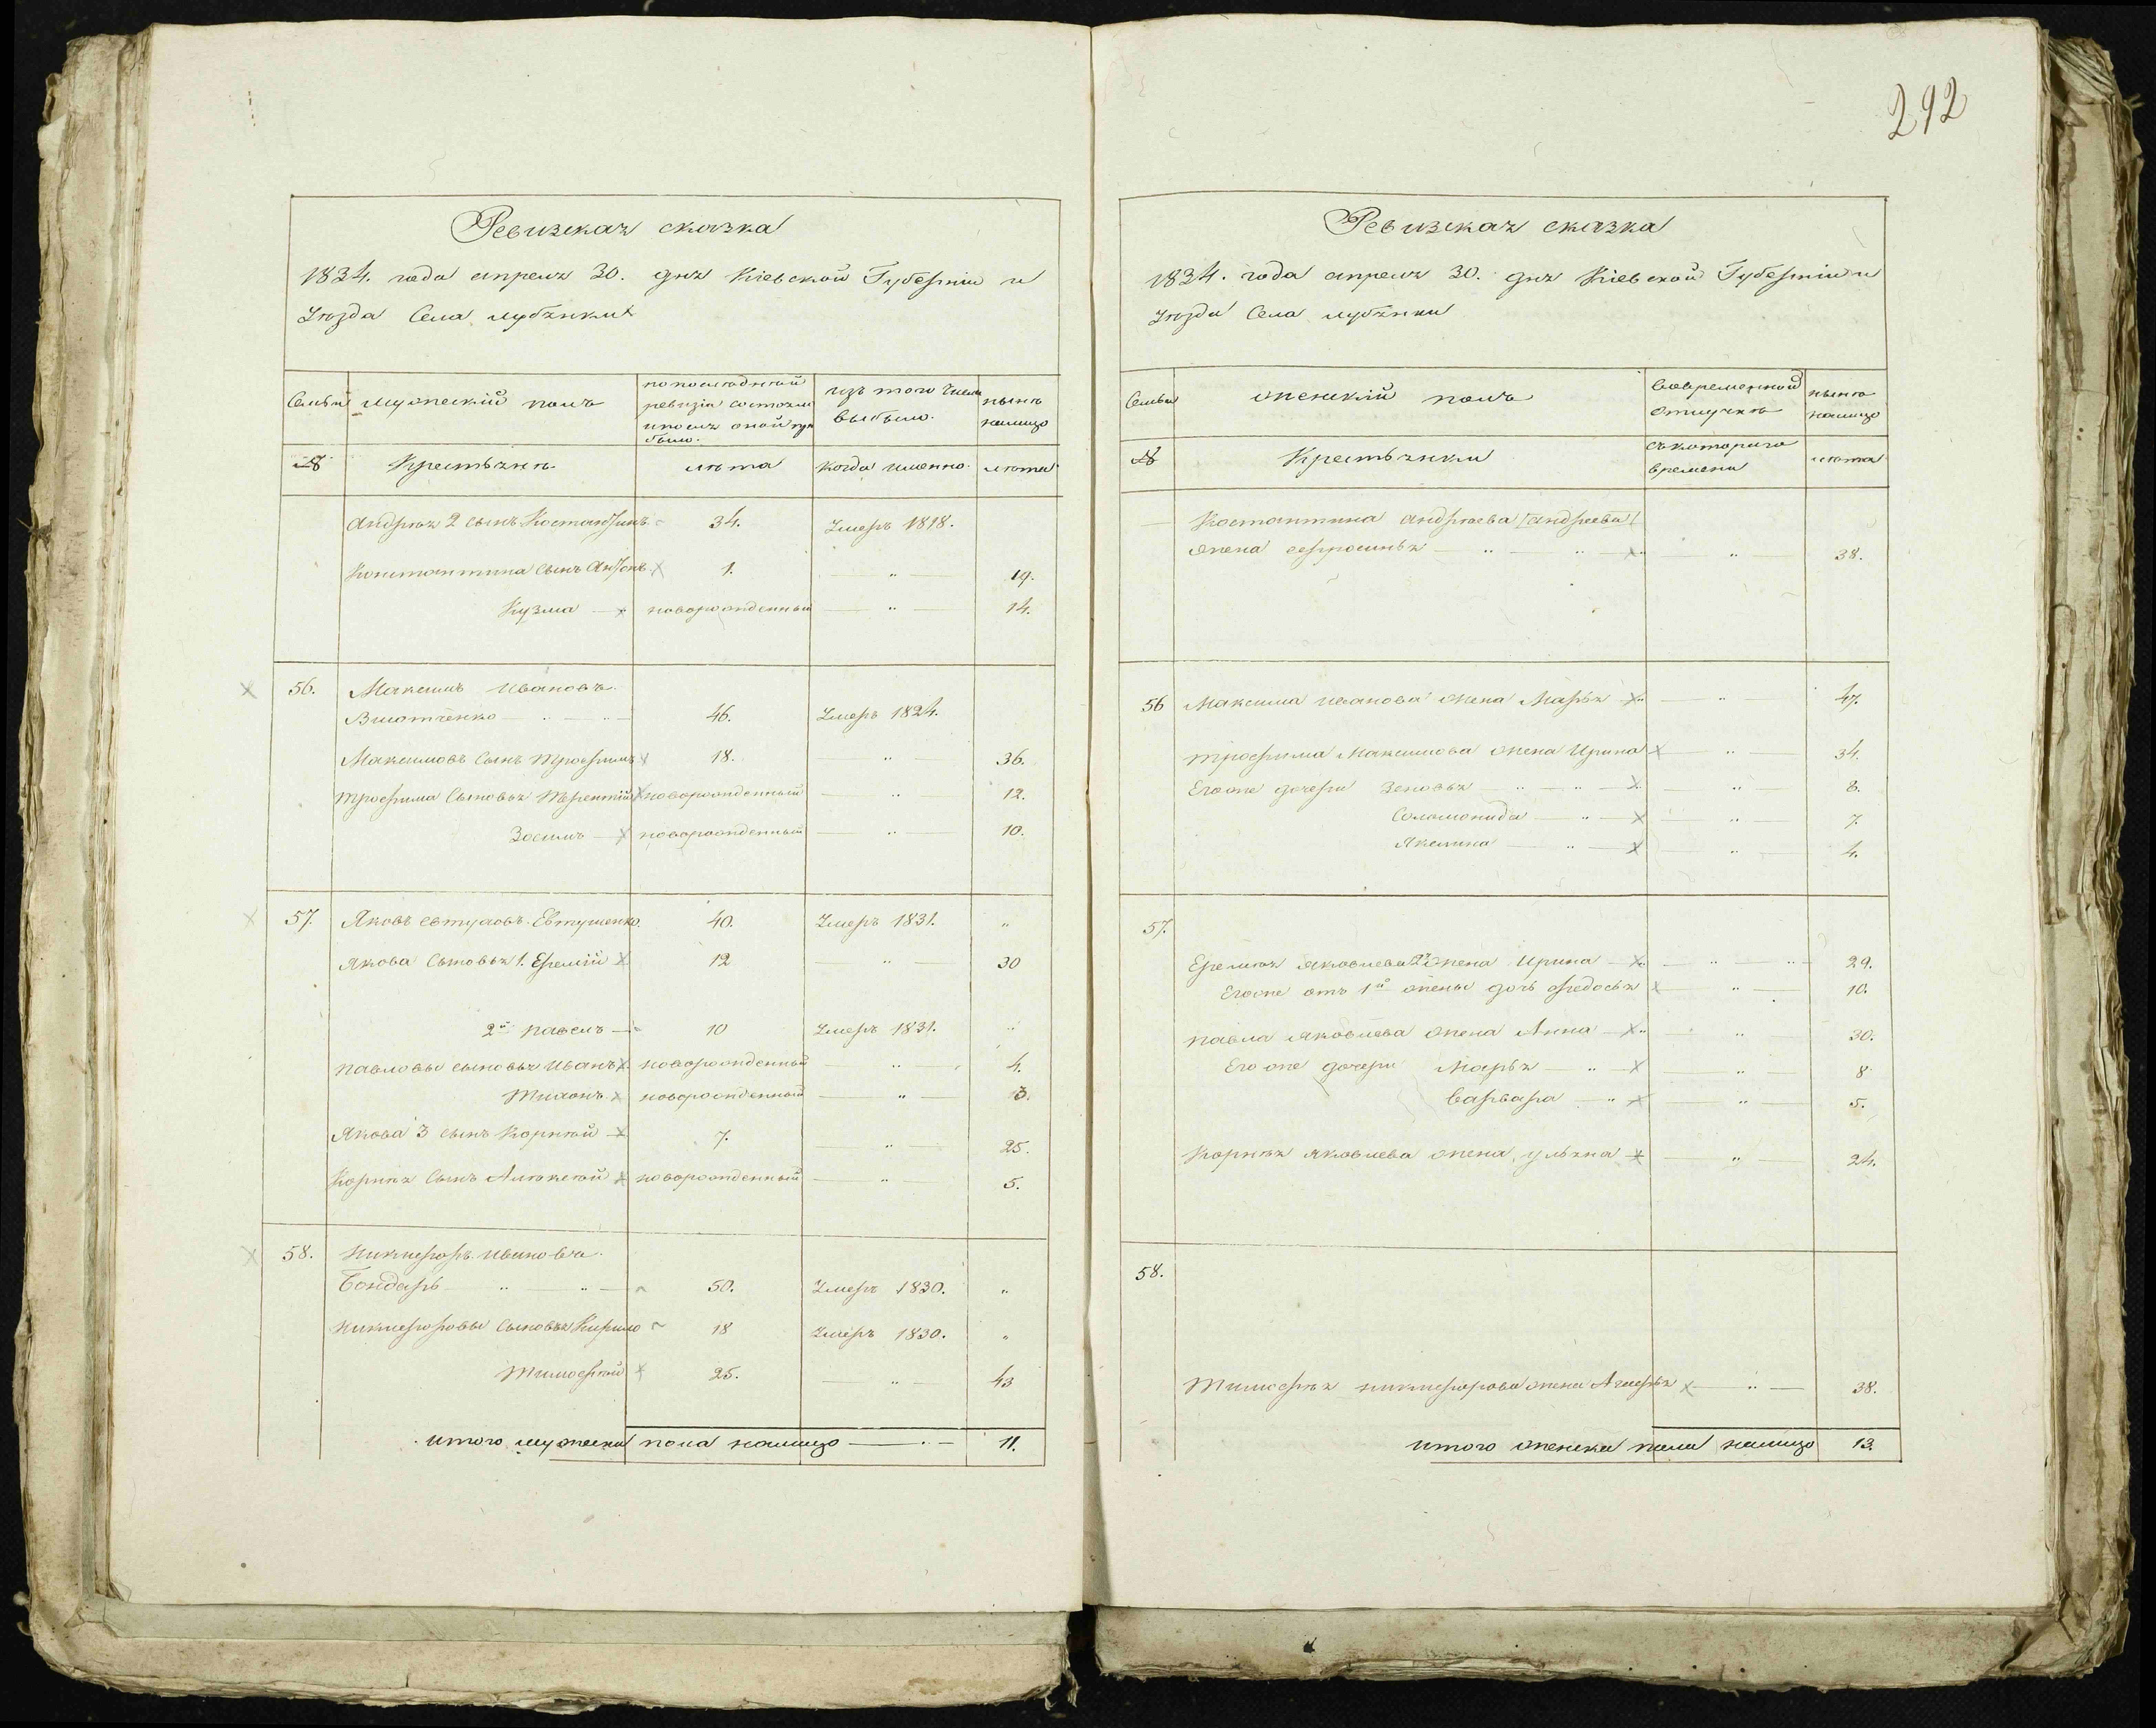 292
Ревизская сказка
1834. года апреля 30. дня Кіевской Губерніи и
Уезда Села лубянки
Семьи мужескій полъ
по последней ревизіи состояло и после оной при было.
изъ того числа выбыло.
ныне налицо
№ Крестьяне лета когда именно лета
Андрея 2 сынъ Костантинъ 34. Умеръ 1818.
Константина сынъ 1. " 19.
Кузма новорожденный " 14.
56. Максимъ Ивановъ
46. Умеръ 1824.
Максимовъ сынъ Трофимъ 18. " 36.
Трофима Сыновья Терентій новорожденный " 12.
Зосимъ новорожденный " 10.
57. Яковъ Евтуховъ Евтушенко 40. Умеръ 1831. "
Якова Сыновья 1. Еремій 12 " 30
2й Павелъ 10 Умеръ 1831. "
Павловы сыновья Иванъ новорожденный " 4.
Тихонъ новорожденный " 3.
Якова 3 сынъ Корней 7. " 25.
Корнея Сынъ Алексей новорожденный " 5.
58. Никифоръ Ивановъ
Бондарь 50. Умеръ 1830. "
Никифоровы Сыновья Кирило 18 Умеръ 1830. "
Тимофей 25. " 43
итого мужеска пола налицо 11.
Ревизская сказка
1834. года апреля 30. дня Кіевской Губерніи и
Уезда Села лубянки
Семьи женскій полъ
во временной отлучке
ныне налицо
№ Крестьянки съ котораго времени лета
Костантина андреева /андреева/
жена ефросинья " 38.
56 Максима иванова жена Марья " 47.
Трофима Максимова жена Ирина " 34.
Егоже дочери Зеновья " 8.
Соломонида " 7.
Якилина " 4.
57.
Еремея яковлева 2я жена Ирина " 29.
Егоже отъ 1й жены дочь федосья " 10.
Павла яковлева жена Анна " 30.
Егоже дочери Марья " 8
варвара " 5.
Корнея яковлева жена ульяна " 24.
58.
Тимофея никифорова жена " 38.
итого женска пола налицо 13.